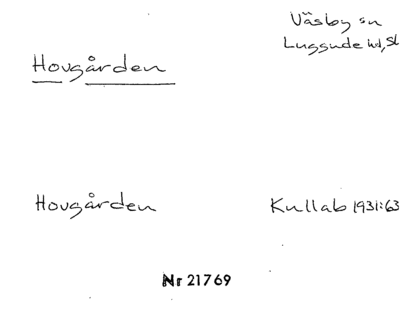 Väsby sn
Luggude hd, Sk
Hovgården
Hovgården
Kullab 1931:63
Nr 21769